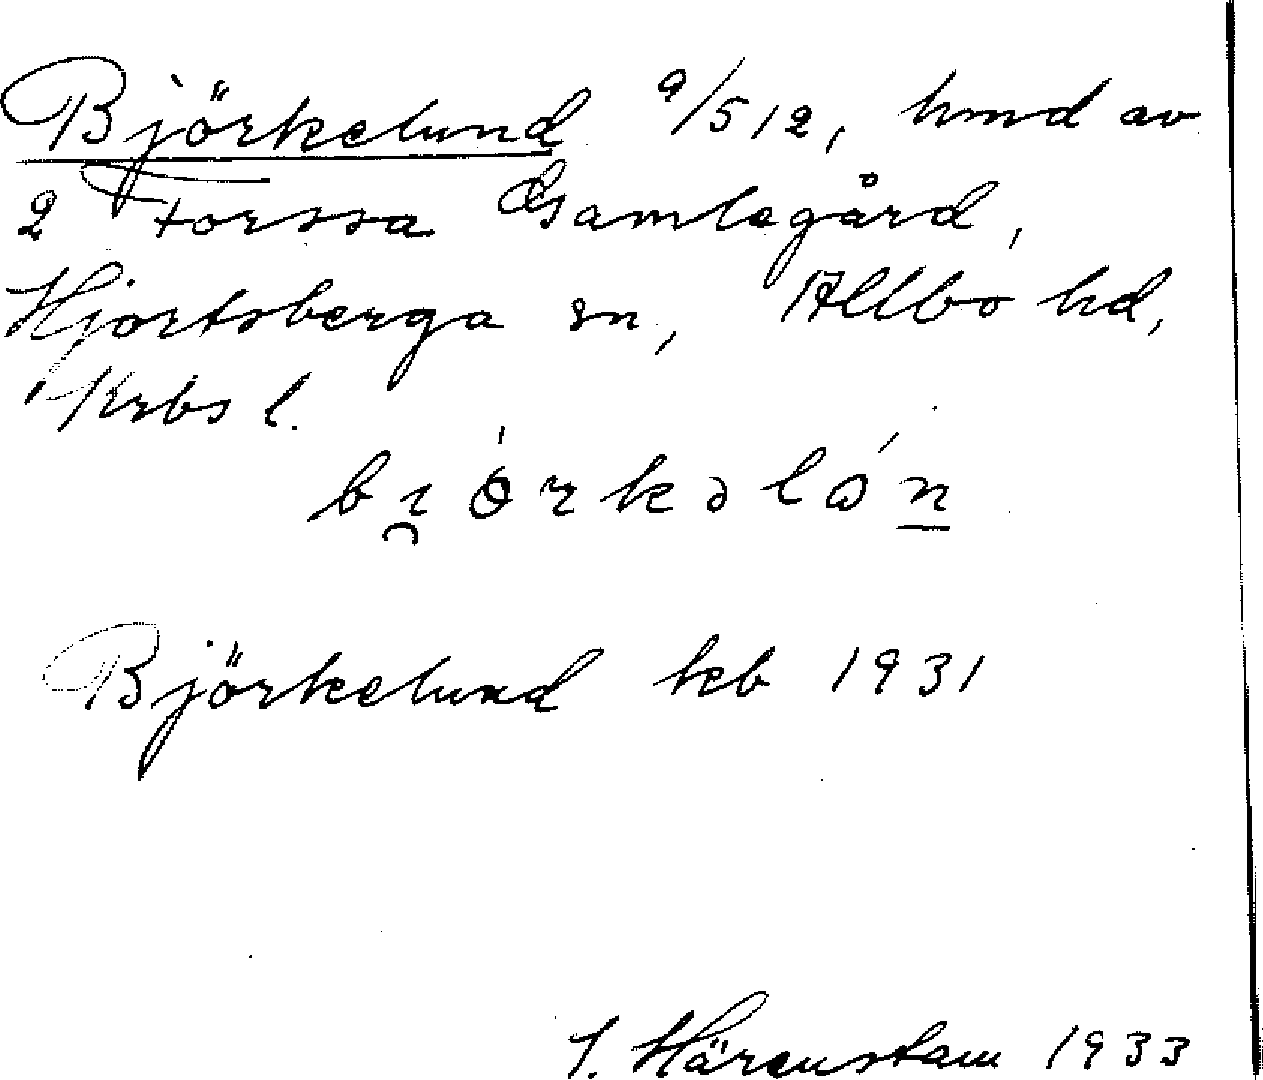 Björkelund 9/512, hmd av
2 Forssa Gamlegård,
Hjortsberga sn, Allbo hd,
Krbs l.
bi̯ö́rkəlón
Björkelund kb 1931
J. Härenstam 1933